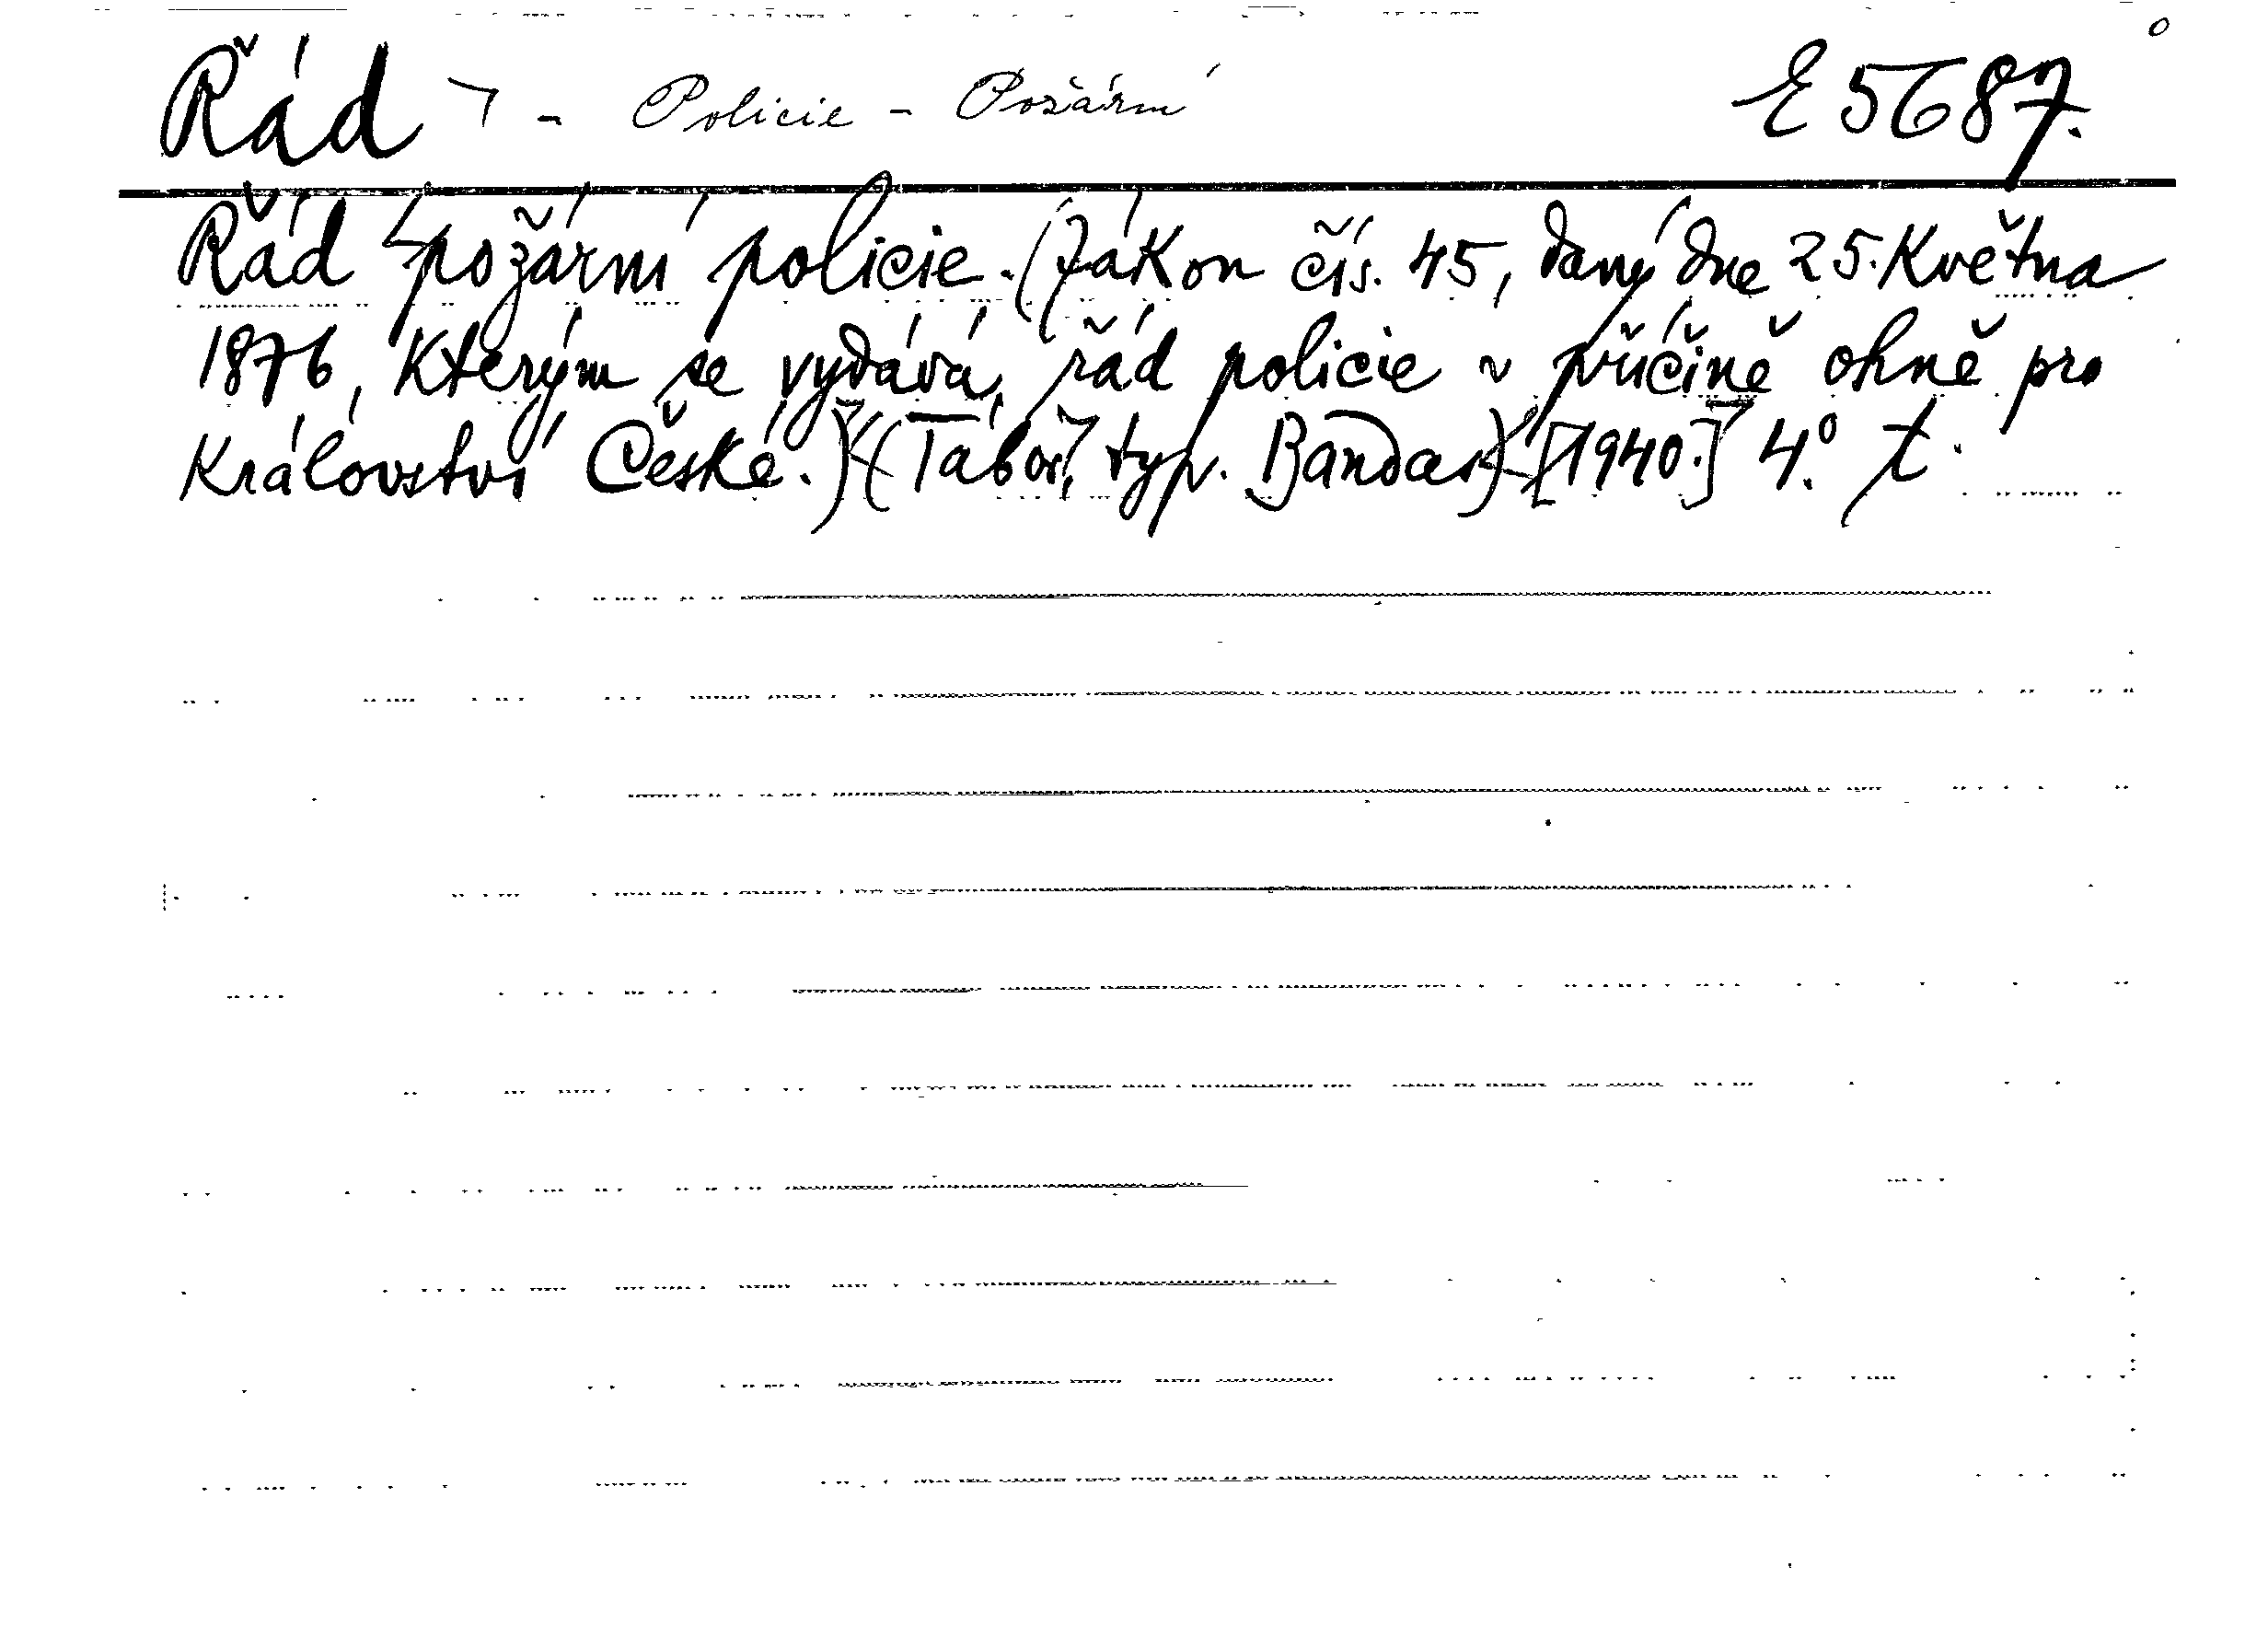 Řád - Policie - Požární E 5687.
Řád požární policie. (Zákon čís. 45, daný dne 25. Května
1876, kterým se vydává řád policie v příčině ohně pro
Království České.) (Tábor, typ. Bandas) [1940.] 4.° t.